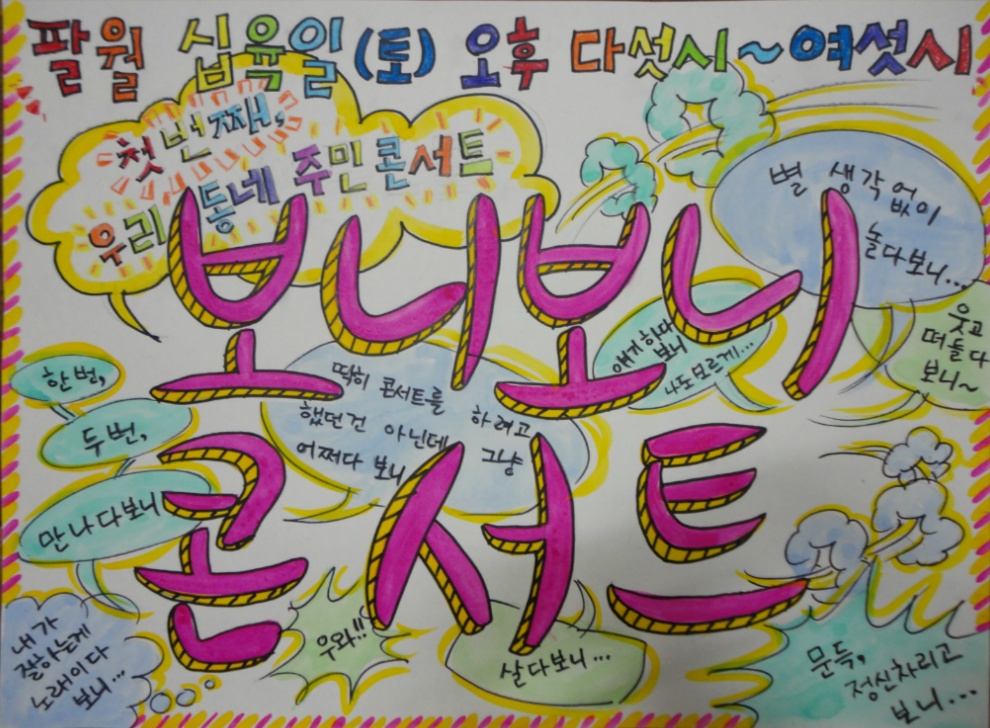 팔월 십육일(토) 오후 다섯시~여섯시
첫번째,
우리 동네 주민콘서트
보니보니
콘서트
별 생각없이
놀다보니...
웃고
떠들다
보니~
얘기하다
보니
나도모르게...
딱히 콘서트를 하려고
했던건 아닌데 그냥
어쩌다 보니
한번,
두번,
만나다보니
내가
잘하는게
노래이다
보니...
우와!!
살다보니...
문득,
정신차리고
보니...